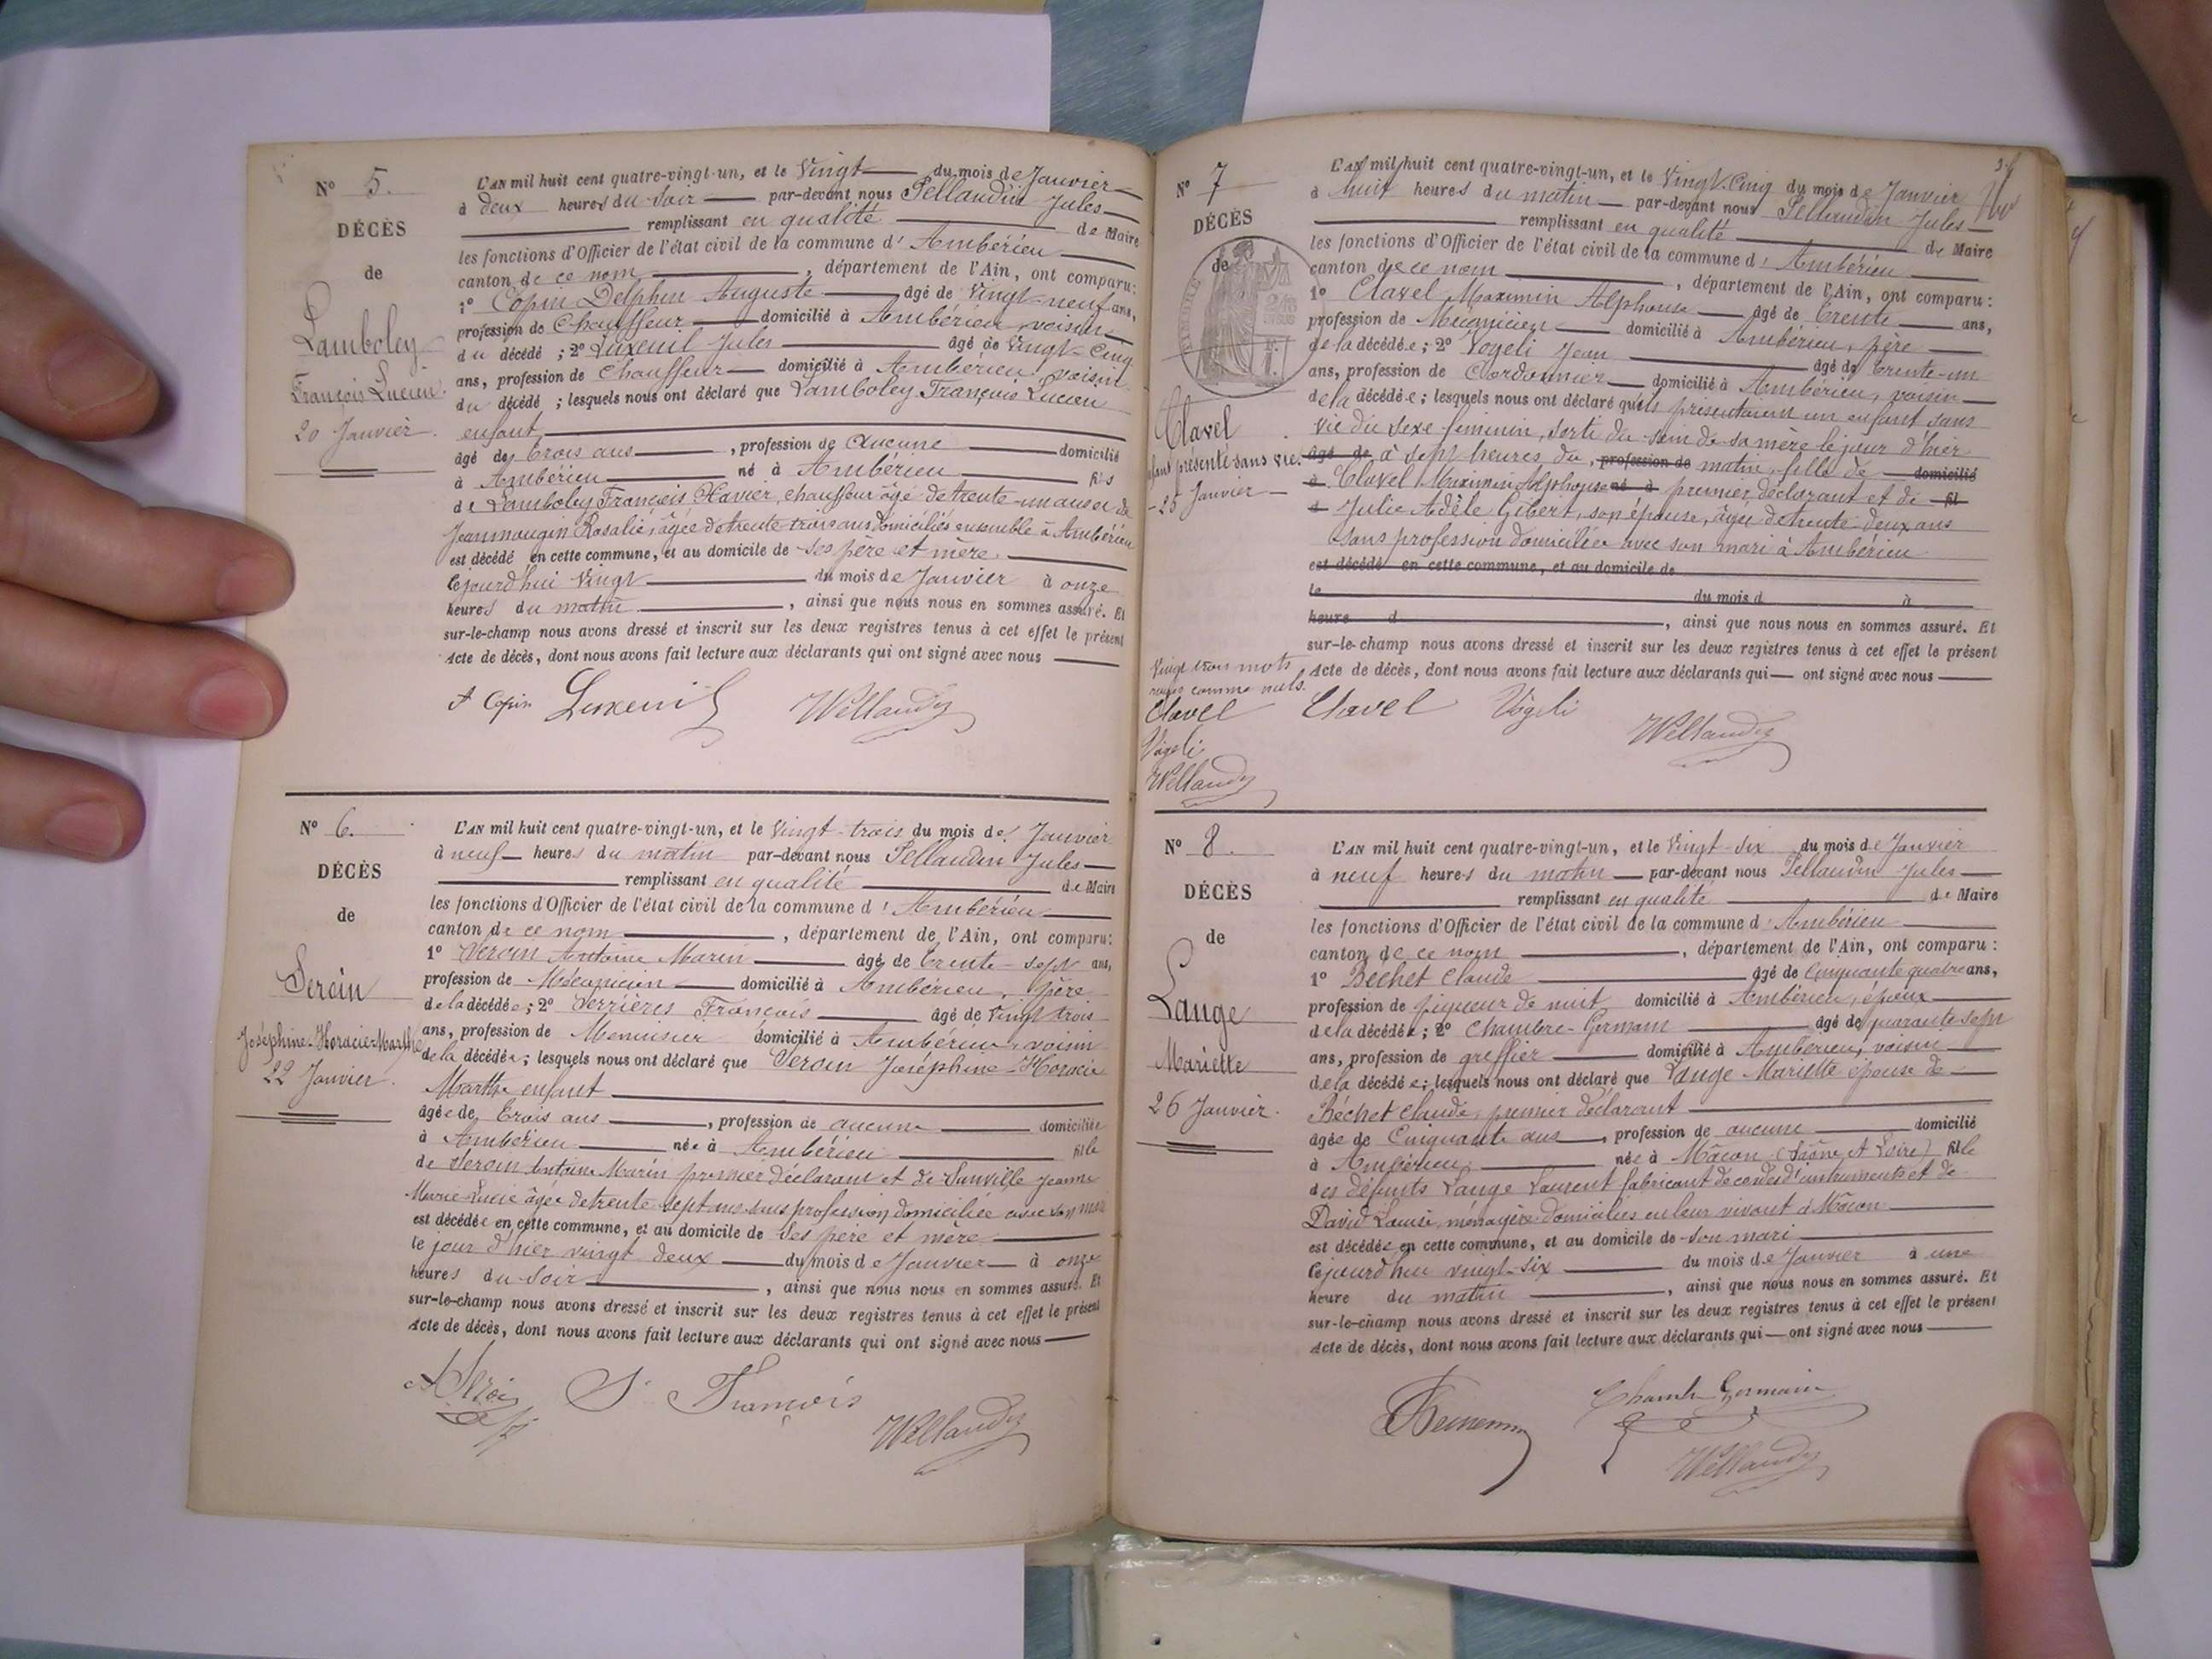 N° 5.
DÉCÈS
de
Lamboley
François Lucien
20 Janvier.
L'AN mil huit cent quatre-vingt-un, et le Vingt du mois de Janvier
à deux heures du soir par-devant nous Pellaudin Jules
remplissant en qualité de Maire
les fonctions d'Officier de l'état civil de la commune d' Ambérieu
canton de ce nom, département de l'Ain, ont comparu:
1° Copin Delphin Auguste âgé de Vingt-neuf ans,
profession de Chauffeur domicilié à Ambérieu, voisin
du décédé ; 2° Luxeuil Jules âgé de Vingt-Cinq
ans, profession de Chauffeur domicilié à Ambérieu voisin
du décédé ; lesquels nous ont déclaré que Lamboley François Lucien
enfant
âgé de trois ans, profession de Aucune domicilié
à Ambérieu né à Ambérieu fils
de Lamboley François Xavier, chauffeur âgé de trente-un ans et de
Jeanmougin Rosalie, âgée de trente trois ans, domiciliés ensemble à Ambérieu
est décédé en cette commune, et au domicile de ses père et mère
le jourd'hui Vingt du mois de Janvier à onze
heures du matin, ainsi que nous nous en sommes assuré. Et
sur-le-champ nous avons dressé et inscrit sur les deux registres tenus à cet effet le présent
Acte de décès, dont nous avons fait lecture aux déclarants qui ont signé avec nous
A Copin Luxeuil
N° 6.
DÉCÈS
de
Seroin
Joséphine-Horacie-Marthe
22 Janvier.
L'AN mil huit cent quatre-vingt-un, et le Vingt-trois du mois de Janvier
à neuf heures du matin par-devant nous Pellaudin Jules
remplissant en qualité de Maire
les fonctions d'Officier de l'état civil de la commune d' Ambérieu
canton de ce nom, département de l'Ain, ont comparu:
1° Seroin Antoine Marin âgé de trente-sept ans,
profession de Mécanicien domicilié à Ambérieu, père
de la décédée ; 2° Serrières François âgé de Vingt trois
ans, profession de Menuisier domicilié à Ambérieu voisin
de la décédée ; lesquels nous ont déclaré que Seroin Joséphine-Horacie
Marthe enfant
âgée de trois ans, profession de aucune domiciliée
à Ambérieu née à Ambérieu fille
de Seroin Antoine Marin premier déclarant et de Sunville Jeanne
Marie Lucie âgée de trente-sept ans sans profession domiciliée avec son mari
est décédée en cette commune, et au domicile de ses père et mère
le jour d'hier vingt deux du mois de Janvier à onze
heures du soir, ainsi que nous nous en sommes assuré. Et
sur-le-champ nous avons dressé et inscrit sur les deux registres tenus à cet effet le présent
Acte de décès, dont nous avons fait lecture aux déclarants qui ont signé avec nous
S. François
N° 7
DÉCÈS
de
Clavel
enfant présenté sans vie.
25 Janvier
L'AN mil huit cent quatre-vingt-un, et le Vingt-Cinq du mois de Janvier
à huit heures du matin par-devant nous Pellaudin Jules
remplissant en qualité de Maire
les fonctions d'Officier de l'état civil de la commune d' Ambérieu
canton de ce nom, département de l'Ain, ont comparu :
1° Clavel Maximin Alphonse âgé de trente ans,
profession de Mécanicien domicilié à Ambérieu, père
de la décédée ; 2° Vogeli Jean âgé de trente-un
ans, profession de Cordonnier domicilié à Ambérieu, voisin
de la décédée ; lesquels nous ont déclaré qu'ils présentaient un enfant sans
vie du sexe féminin, sorti du sein de sa mère le jour d'hier
âgé de, à sept heures du, profession de matin, fille de domicilié
à Clavel Maximin Alphonse né à premier déclarant et de fil
d Julie Adèle Gibert, son épouse, âgée de trente-deux ans
sans profession domiciliée avec son mari à Ambérieu
est décédé en cette commune, et au domicile de
le du mois d à
heure d, ainsi que nous nous en sommes assuré. Et
sur-le-champ nous avons dressé et inscrit sur les deux registres tenus à cet effet le présent
Acte de décès, dont nous avons fait lecture aux déclarants qui ont signé avec nous
Vingt trois mots
rayés comme nuls.
Clavel
Vögeli
Clavel Vögeli
N° 8.
DÉCÈS
de
Lange
Mariette
26 Janvier.
L'AN mil huit cent quatre-vingt-un, et le Vingt-six du mois de Janvier
à neuf heures du matin par-devant nous Pellaudin Jules
remplissant en qualité de Maire
les fonctions d'Officier de l'état civil de la commune d' Ambérieu
canton de ce nom, département de l'Ain, ont comparu :
1° Béchet Claude âgé de Cinquante quatre ans,
profession de piqueur de nuit domicilié à Ambérieu, époux
de la décédée ; 2° Chambre-Germain âgé de quarante-sept
ans, profession de greffier domicilié à Ambérieu, voisin
de la décédée ; lesquels nous ont déclaré que Lange Mariette épouse de
Béchet Claude, premier déclarant
âgée de Cinquante ans, profession de aucune domicilié
à Ambérieu née à Mâcon (Saône et Loire) fille
des défunts Lange Laurent fabricant de cordes d'instruments et de
David Louise, ménagère domiciliés en leur vivant à Mâcon
est décédée en cette commune, et au domicile de son mari
le jourd'hui vingt-six du mois de Janvier à une
heure du matin, ainsi que nous nous en sommes assuré. Et
sur-le-champ nous avons dressé et inscrit sur les deux registres tenus à cet effet le présent
Acte de décès, dont nous avons fait lecture aux déclarants qui ont signé avec nous
Chambre Germain